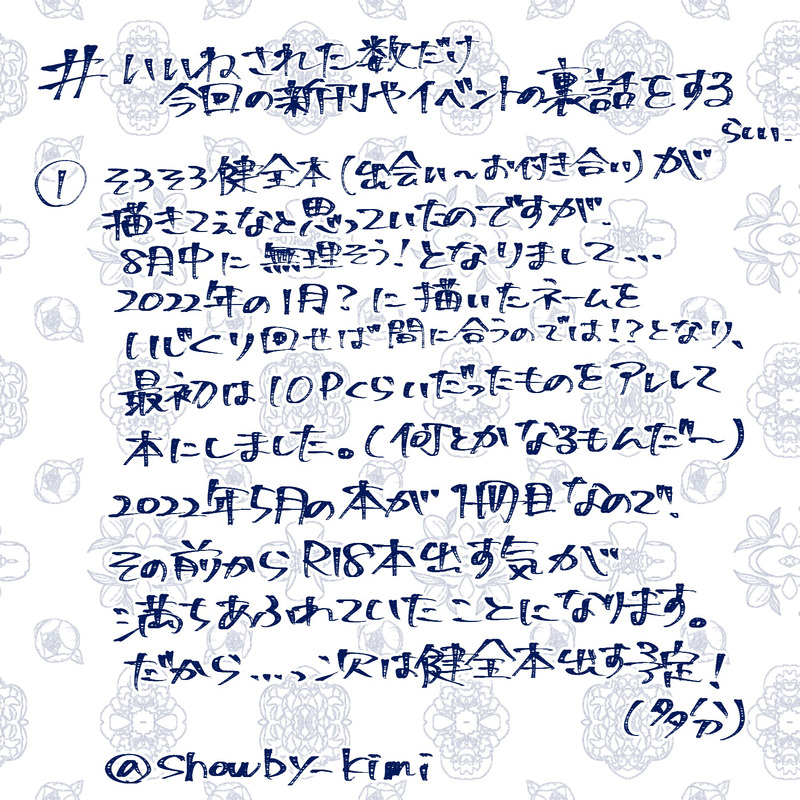 #いいねされた数だけ
今回の新刊やイベントの裏話をする
らしい.
① そろそろ健全本(出会い〜お付き合い)が
描きてぇなと思っていたのですが、
8月中に無理そう!となりまして...
2022年の1月?に描いたネームを
いじくり回せば間に合うのでは!?となり、
最初は10Pくらいだったものをアレして
本にしました。(何とかなるもんだ〜)
2022年5月の本が1冊目なので!
その前からR18本出す気が
満ちあふれていたことになります。
だから...っ次は健全本出す予定!
(多分)
@showby_kimi